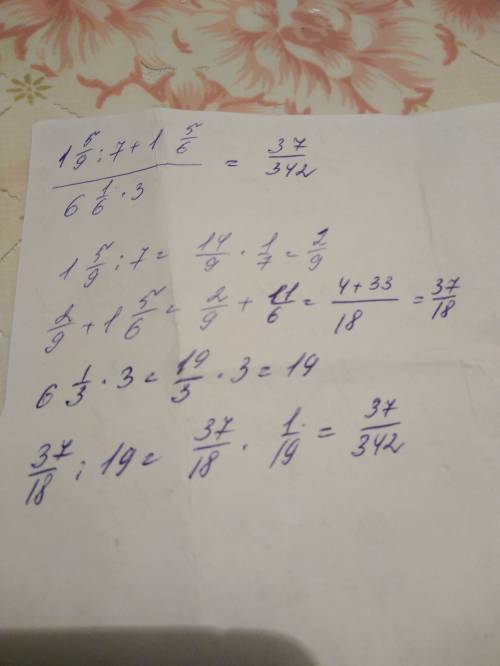 1 5/9 : 7 + 1 5/6 / 6 1/6 · 3 = 37/342
1 5/9 : 7 = 14/9 · 1/7 = 2/9
2/9 + 1 5/6 = 2/9 + 11/6 = 4+33/18 = 37/18
6 1/3 · 3 = 19/3 · 3 = 19
37/18 : 19 = 37/18 · 1/19 = 37/342